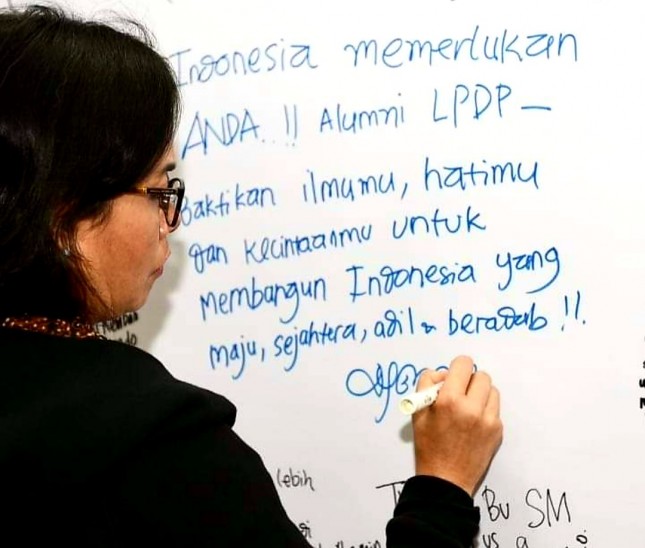 Indonesia memerlukan
ANDA..!! Alumni LPDP –
Baktikan ilmumu, hatimu
dan kecintaanmu untuk
membangun Indonesia yang
maju, sejahtera, adil & beradab !!.
lebih
Bu SM
us a